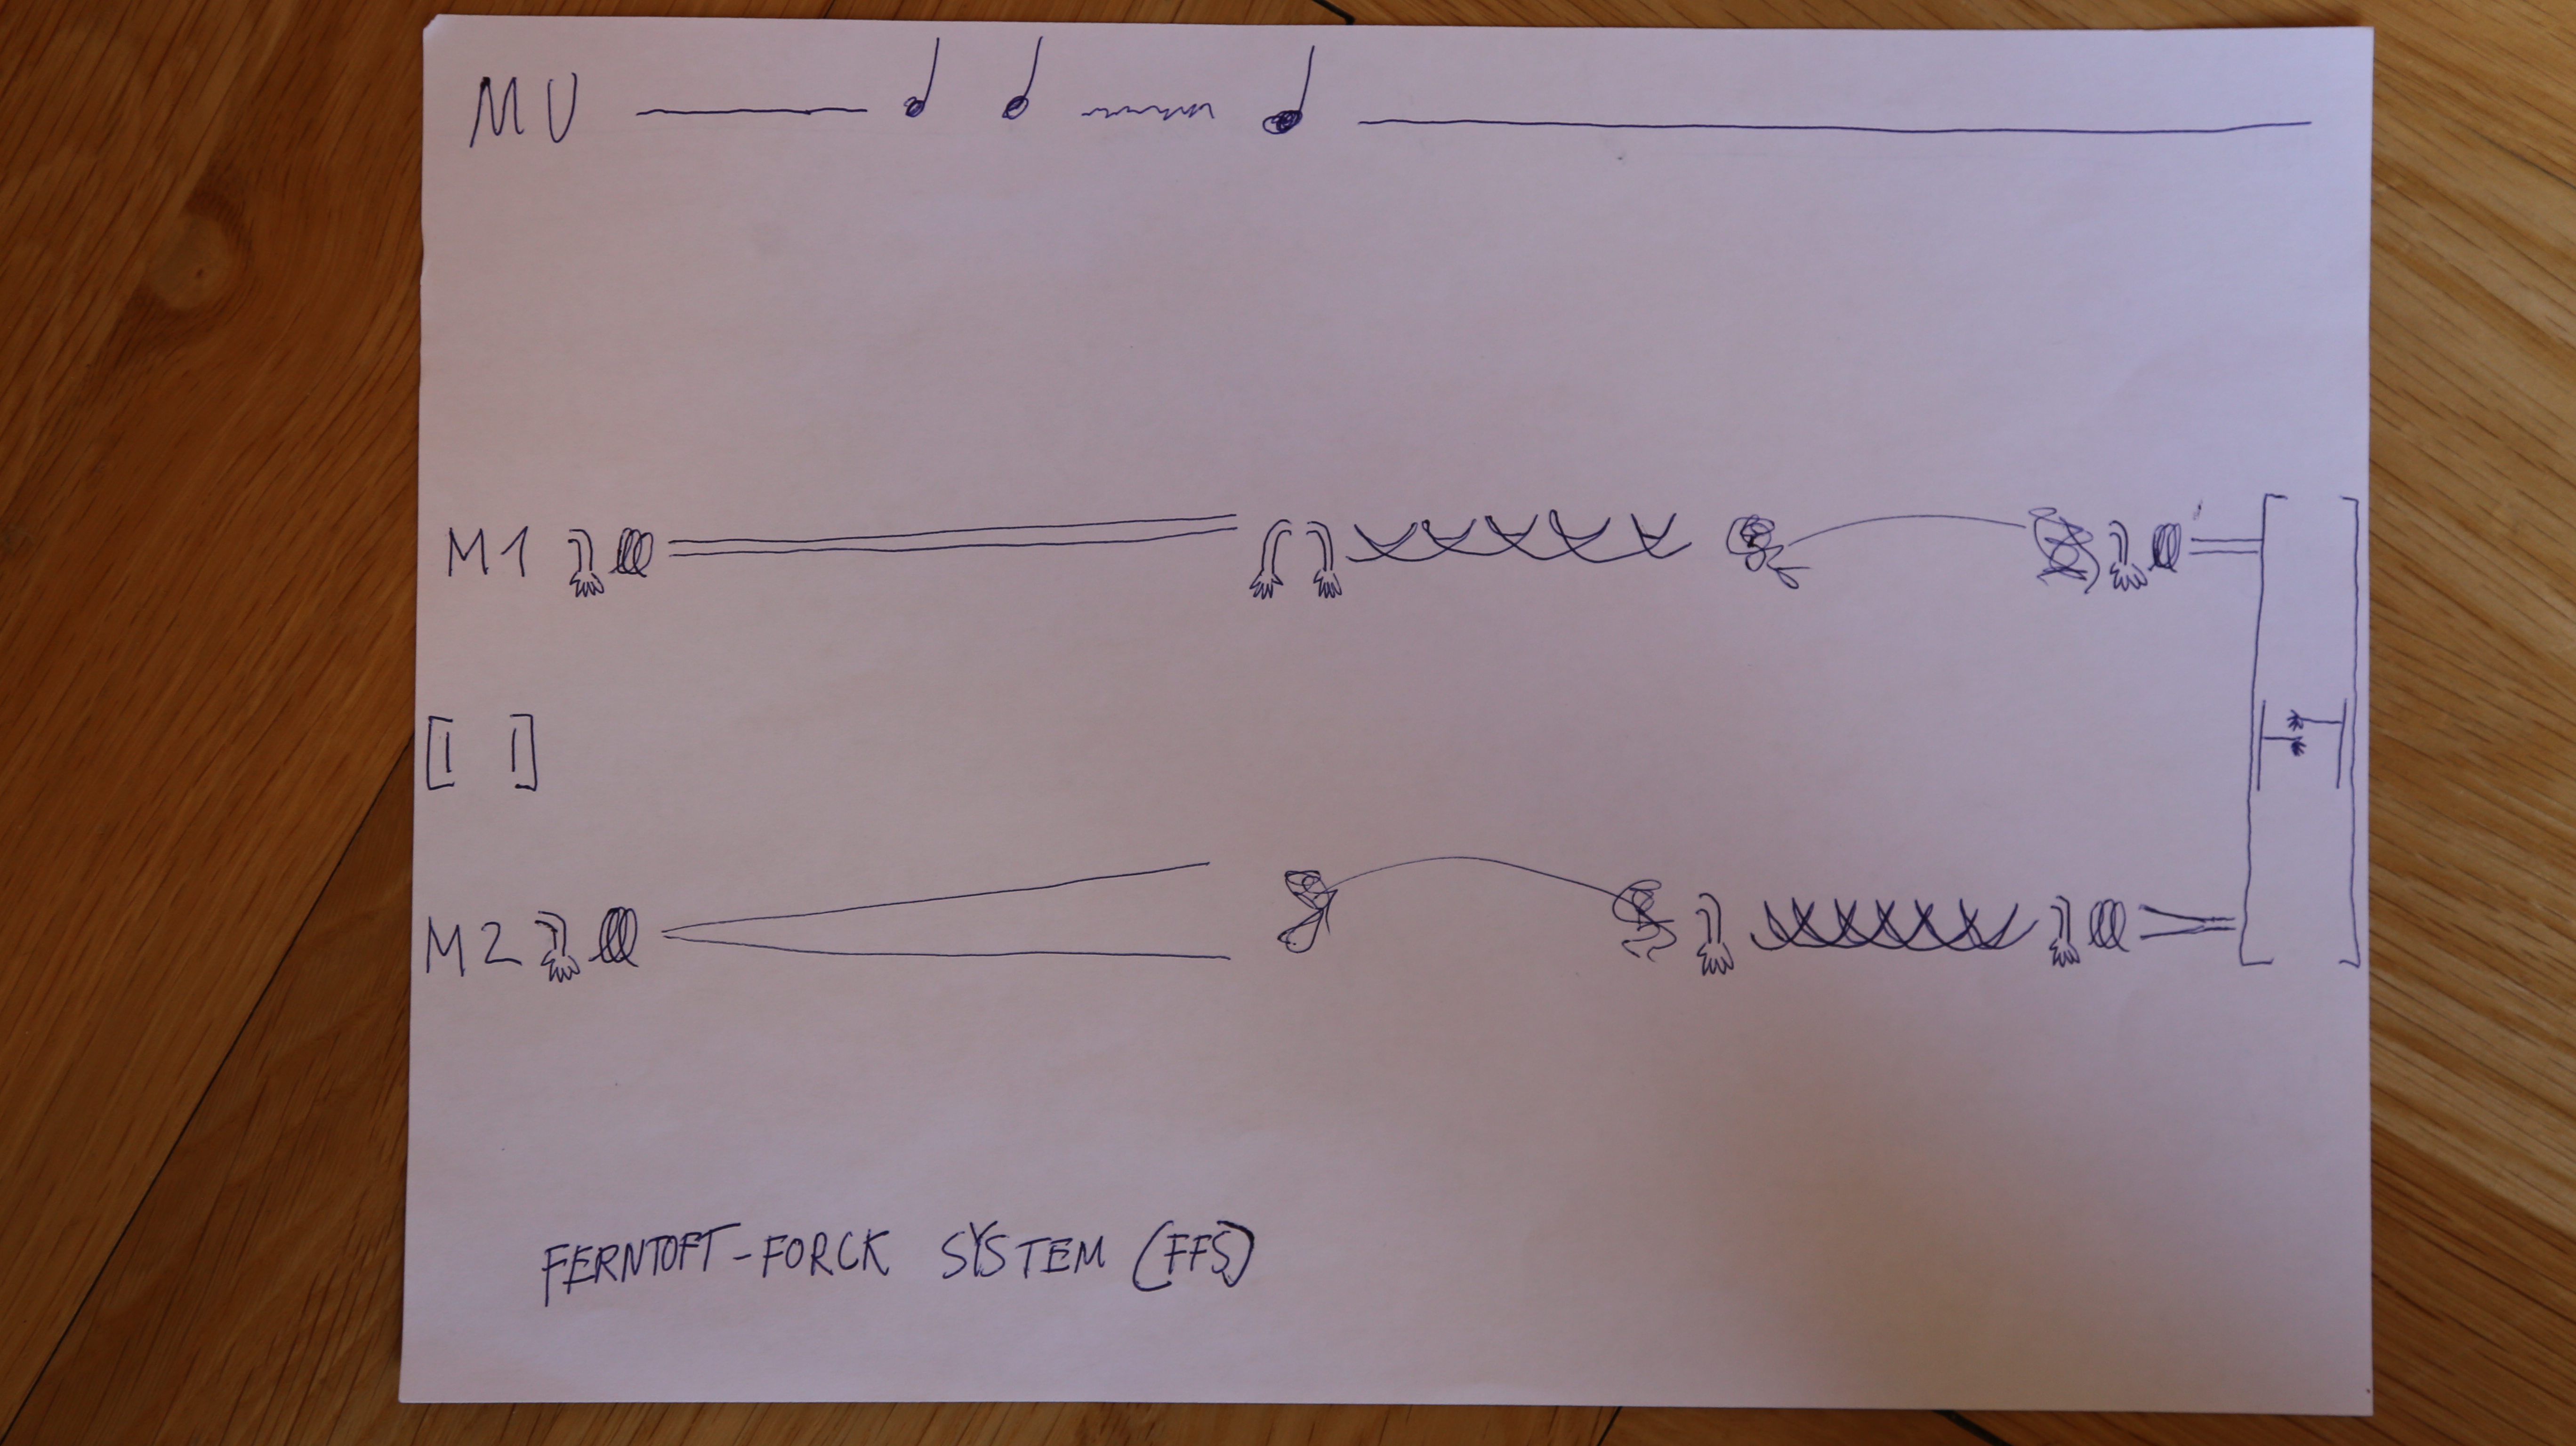 MU
M1
[| |]
M2
FERNTOFT-FORCK SYSTEM (FFS)